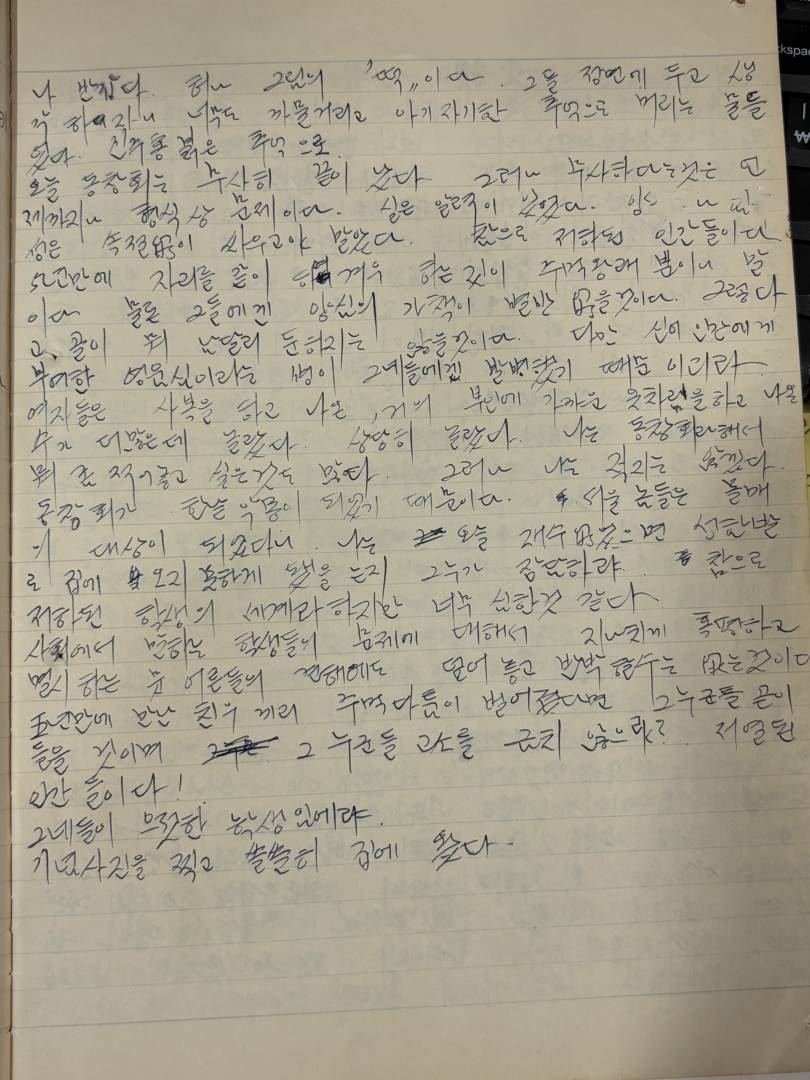 나 반갑다. 허나 그림의 "떡"이다. 그들 정면에 두고 생
각 하자니 너무도 까물거리고 아기자기한 추억으로 머리는 물들
었다. 진주홍 붉은 추억으로.
오늘 동창회는 무사히 끝이 났다. 그러나 무사하다는것은 언
제까지나 형식상 문제이다. 실은 알력이 있었다.
성은 속절없이 싸우고야 말았다. 참으로 저하된 인간들이다
5년만에 자리를 같이 하여 겨우 하는것이 주먹왕래 뿐이니 말
이다 물론 그들에겐 양심의 가책이 별반 없을것이다. 그렇다
고, 골이 뭐 남달리 둔하지는 않을것이다. 다만 신이 인간에게
부여한 영웅심이라는 병이 그네들에겐 발병했기 때문이리라
여자들은 사복을 하고 나온, 거의 부인에 가까운 옷차림을하고 나온
수가 더많은데 놀랐다. 상당히 놀랐다. 나는 동창회라해서
뭐 좀 적어놓고 싶은것도 많다. 그러나 나는 적지는 않겠다.
동창회가 한낱 악몽이 되었기 때문이다. 서울 놈들은 몰매
의 대상이 되었다니. 나는 오늘 재수없었으면 성한발
로 집에 오지 못하게 됐을 는지 그누가 장담하랴. 참으로
저하된 학생의 세계라하지만 너무 심한것 같다
사회에서 말하는 학생들의 문제에 대해서 지나치게 혹평하고
멸시하는 뭇 어른들의 견해에도 덮어 놓고 반박할수는 없는것이다
五년만에 만난 친우 끼리 주먹다툼이 벌어졌다면 그누군들 곧이
들을 것이며 그 누군들 고소를 금치 않으랴? 저열된
인간 들이다!
그네들이 므릇한 학생임에랴.
기념사진을 찍고 쓸쓸히 집에 왔다.